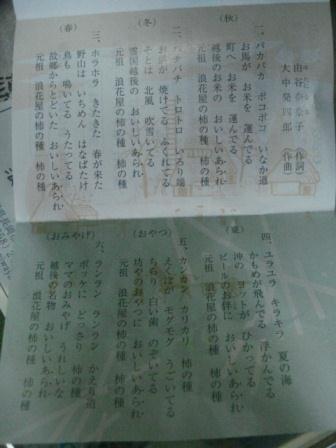 由谷奈々子 作詞
大中発四郎 作曲
(秋)
一、パカパカ ポコポコ いなか道
お馬が お米を 運んでる
町へ お米を 運んでる
越後のお米の おいしいあられ
元祖 浪花屋の柿の種 柿の種
(冬)
二、パチパチ トロトロ いろり端
お餅が 焼けてる ふくれてる
そとは 北風 吹雪いてる
雪国越後の おいしいあられ
元祖 浪花屋の柿の種 柿の種
(春)
三、ホラホラ きたきた 春が来た
野山は いちめん はなばたけ
鳥も 鳴いてる うたってる
故郷からとどいた おいしいあられ
元祖 浪花屋の柿の種 柿の種
(夏)
四、ユラユラ キラキラ 夏の海
かもめが飛んでる 浮かんでる
沖の ヨットが ひかってる
ビールのお伴に おいしいあられ
元祖 浪花屋の柿の種 柿の種
(おやつ)
五、カンカン カリカリ 柿の種
えくぼが モグモグ うごいてる
ちらり 白い歯 のぞいてる
坊やのおやつに おいしいあられ
元祖 浪花屋の柿の種 柿の種
(おみやげ)
六、ランラン ランラン かえり道
ポッケに どっさり 柿の種
ママのおみやげ うれしいな
越後の名物 おいしいあられ
元祖 浪花屋の柿の種 柿の種